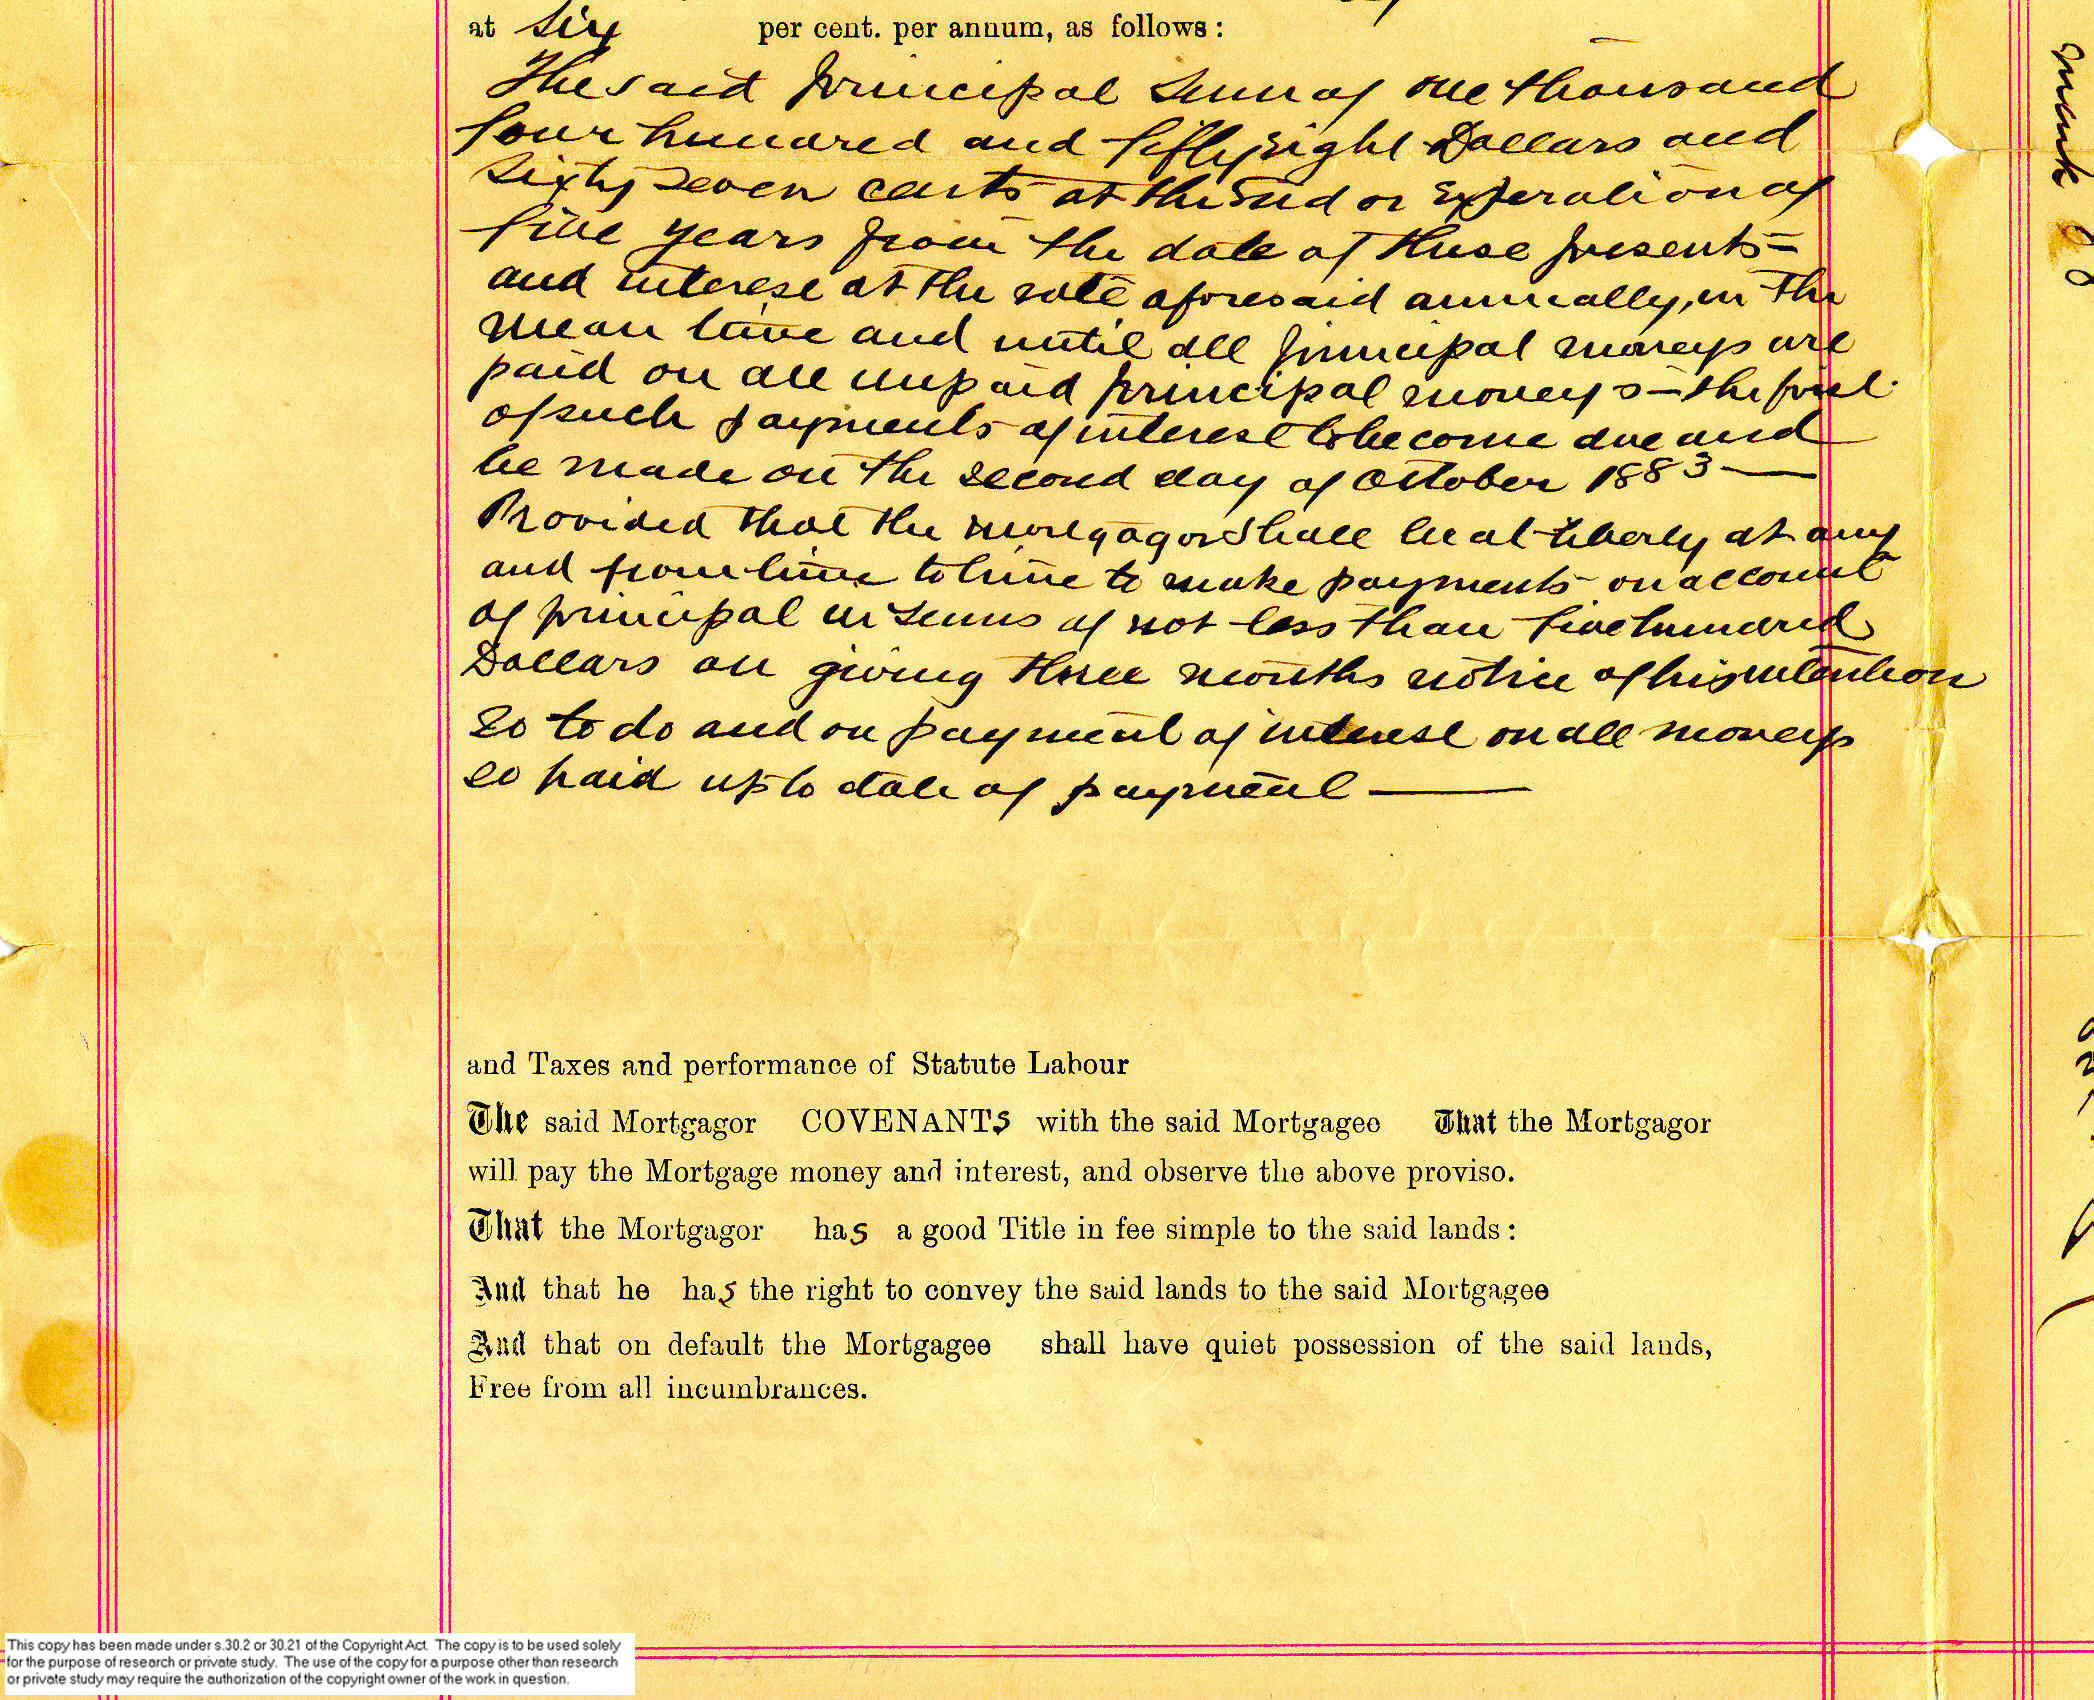 at six per cent. per annum, as follows:
The said principal sum of one thousand
four hundred and fifty eight Dollars and
sixty seven cents at the End or Experation of
five years from the date of these presents =
and interest at the rate aforesaid annually, in the
mean time and until all principal moneys are
paid on all unpaid principal moneys - the first
of such payments of interest to become due and
be made on the second day of October 1883 —
Provided that the mortgagor shall be at liberty at any
and from time to time to make payments on account
of principal in sums of not less than five hundred
Dollars on giving three months notice of his intention
so to do and on payment of interest on all moneys
so paid up to date of payment —
and Taxes and performance of Statute Labour
The said Mortgagor COVENANTS with the said Mortgagee That the Mortgagor
will pay the Mortgage money and interest, and observe the above proviso.
That the Mortgagor has a good Title in fee simple to the said lands:
And that he has the right to convey the said lands to the said Mortgagee
And that on default the Mortgagee shall have quiet possession of the said lands,
Free from all incumbrances.
This copy has been made under s.30.2 or 30.21 of the Copyright Act. The copy is to be used solely
for the purpose of research or private study. The use of the copy for a purpose other than research
or private study may require the authorization of the copyright owner of the work in question.